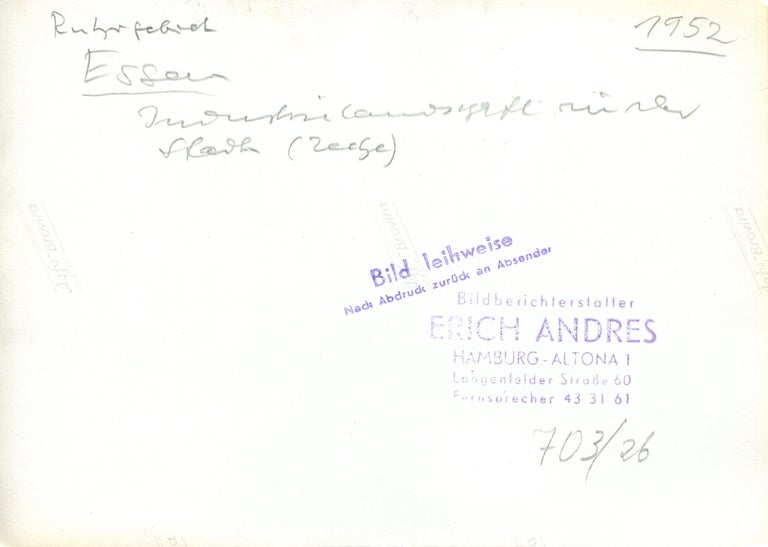 Ruhrgebiet
1952
Essen
Industrielandschaft in der
Stadt (Zeche)
Agfa Brovira
Agfa Brovira
Agfa Brovira
Bild leihweise
Nach Abdruck zurück an Absender
Bildberichterstatter
ERICH ANDRES
HAMBURG-ALTONA 1
Langenfelder Straße 60
Fernsprecher 43 31 61
703/26